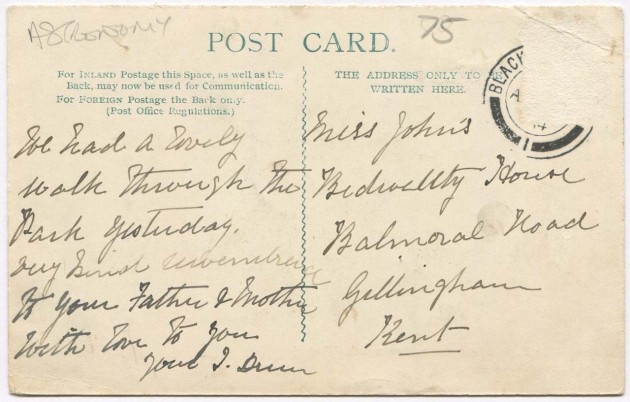 ASTRONOMY
75
POST CARD.
For INLAND Postage this Space, as well as the
Back, may now be used for Communication.
For FOREIGN Postage the Back only.
(Post Office Regulations.)
THE ADDRESS ONLY TO BE
WRITTEN HERE.
BLACK
14
We had a lovely
walk through the
Park yesterday.
very kind remembrance
to your Father & Mother
with love to you
Miss Johns
Bedwellty House
Balmoral Road
Gillingham
Kent